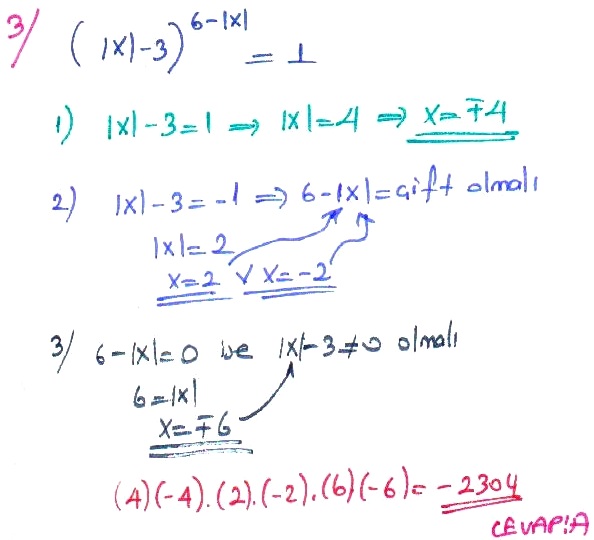 3/ (|x|-3)^{6-|x|} = 1
1) |x|-3=1 ⇒ |x|=4 ⇒ x=∓4
2) |x|-3=-1 ⇒ 6-|x|=çift olmalı
|x|=2
x=2 ∨ x=-2
3/ 6-|x|=0 ve |x|-3≠0 olmalı
6=|x|
x=∓6
(4)(-4).(2).(-2).(6)(-6)=-2304
CEVAP:A